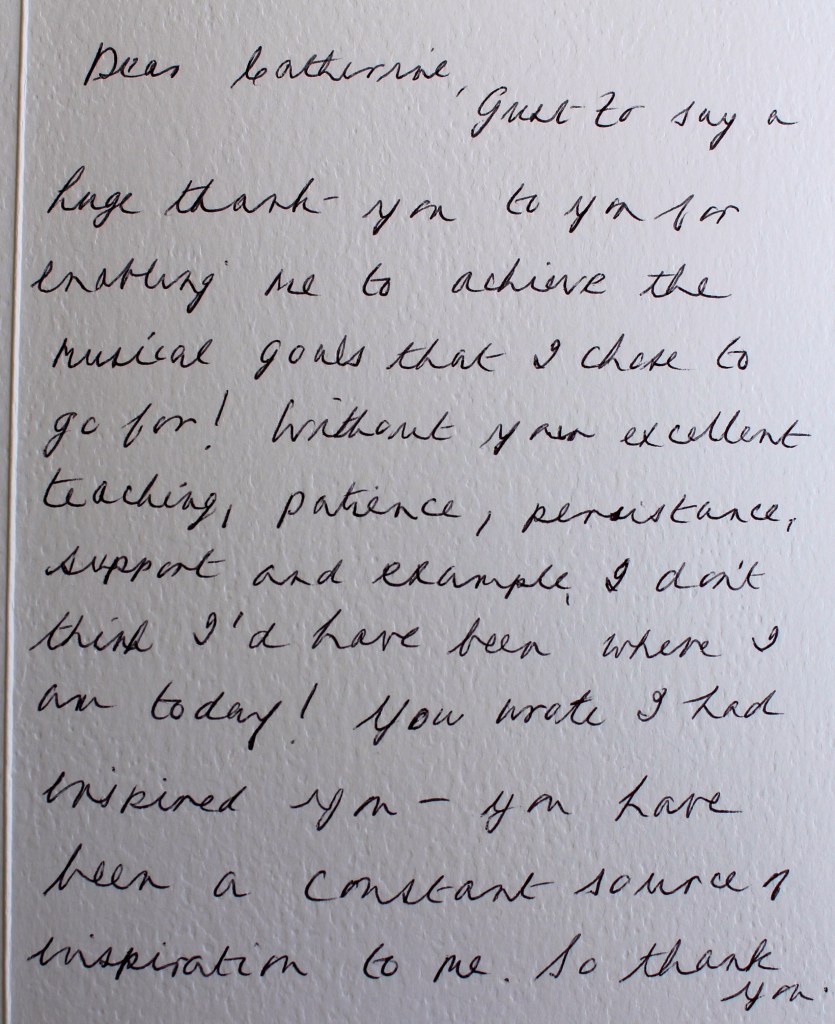 Dear Catherine,
Just to say a
huge thank you to you for
enabling me to achieve the
musical goals that I chose to
go for! Without your excellent
teaching, patience, persistance,
support and example, I don't
think I'd have been where I
am today! You wrote I had
inspired you – you have
been a constant source of
inspiration to me. So thank
you.